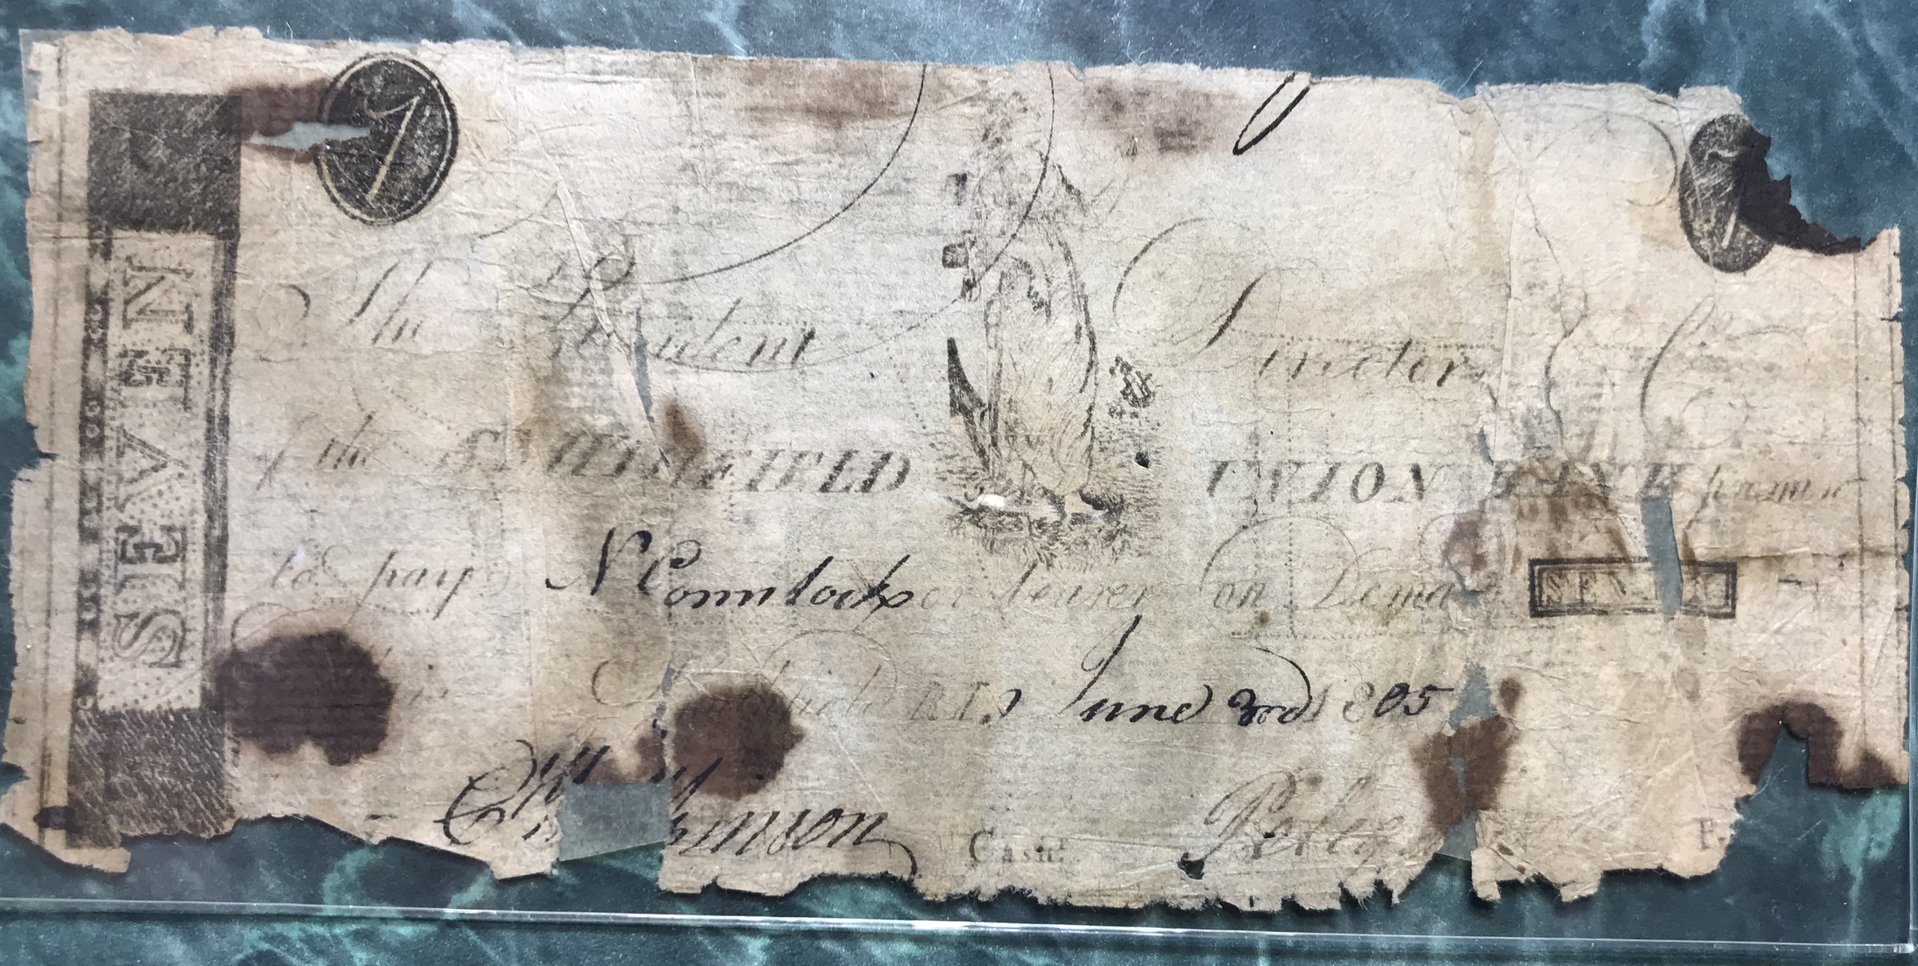 SEVEN
7 7
The President Directors &
of the SMITHFIELD UNION BANK promise
to pay N Comstock or bearer on Demand SEVEN
R I June 3rd 1805
Cash.r Peleg P